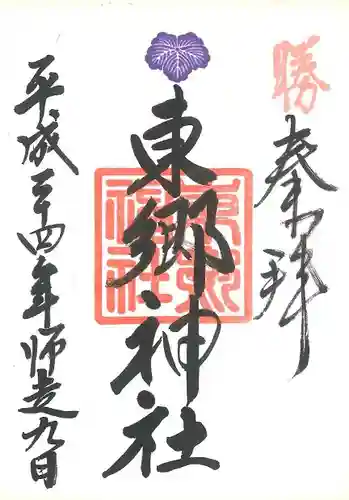 勝
奉拝
東郷神社
東郷神社
平成二十四年師走九日